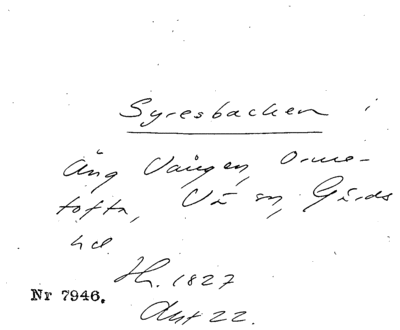 Syresbacken
Äng Vången, Orme-
tofta, Vä sn, Gärds
hd
Hh. 1827
Akt 22.
Nr 7946.